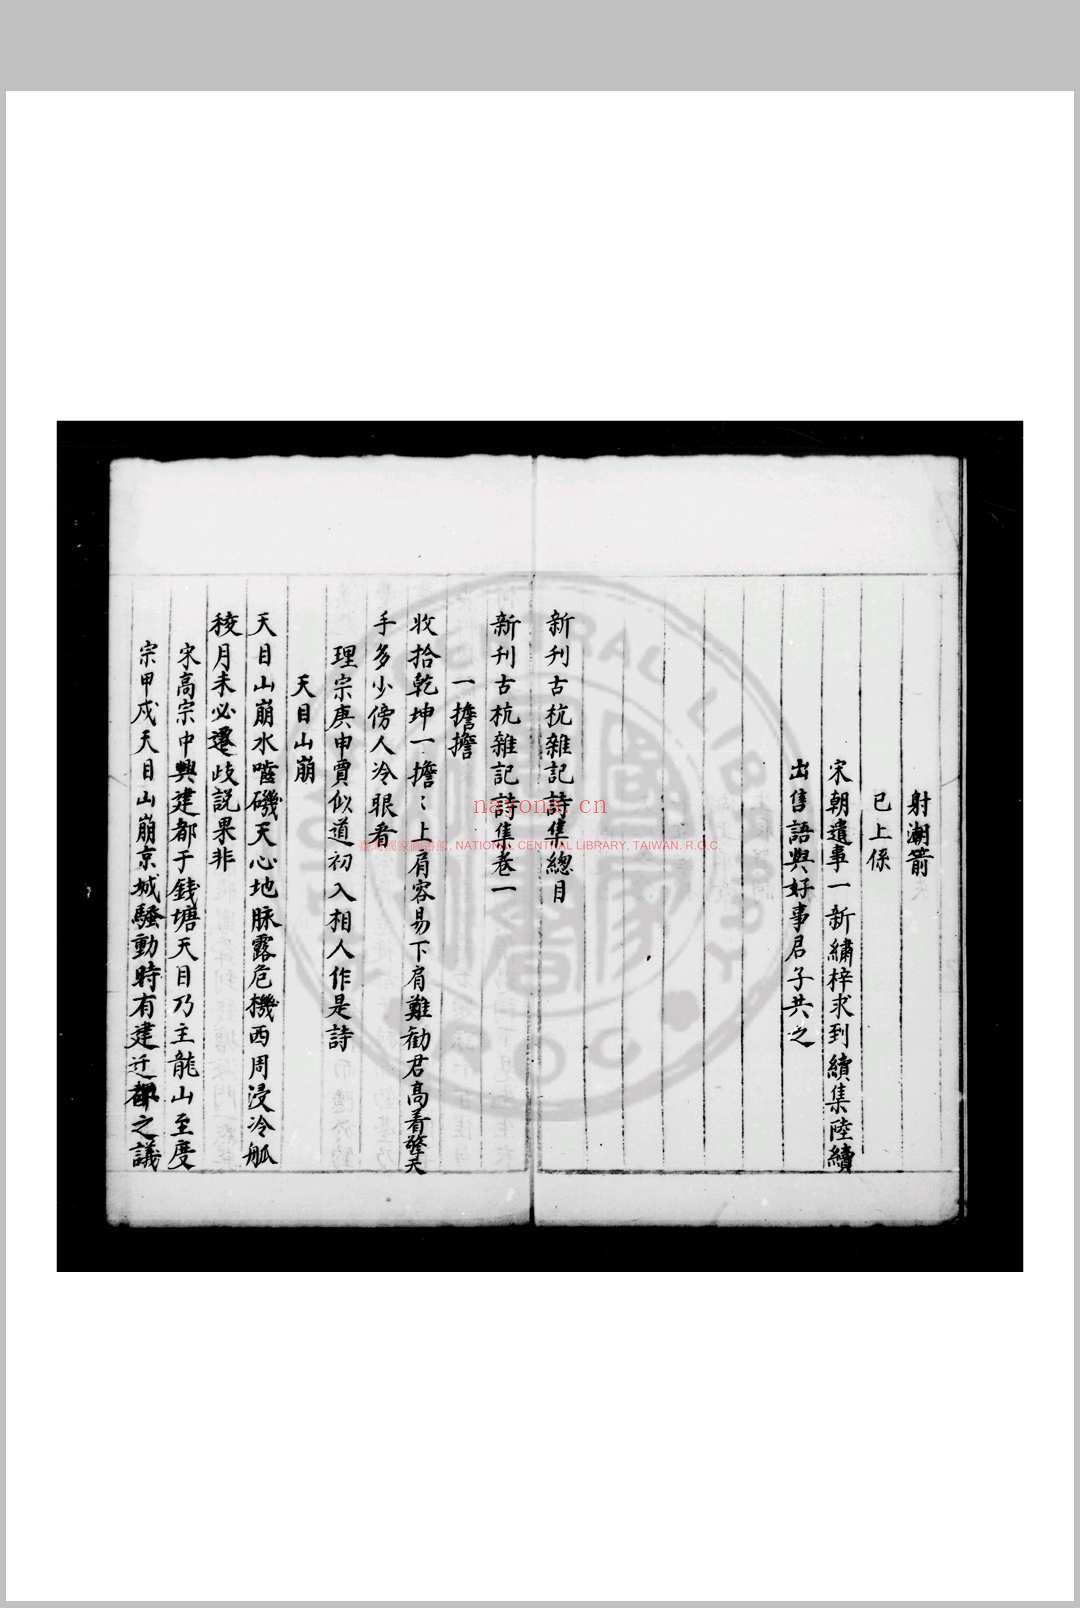 射潮箭
已上係
宋朝遺事一新繡梓求到續集陸續
出售語與好事君子共之
新刊古杭雜記詩集總目
新刊古杭雜記詩集卷一
一擔擔
收拾乾坤一擔:上肩容易下肩難勸君高着擎天
手多少傍人冷眼看
理宗庚申賈似道初入相人作是詩
天目山崩
天目山崩水嚙磯天心地脉露危機西周浸冷觚
稜月未必遷歧説果非
宋高宗中興建都于錢塘天目乃主龍山至度
宗甲戍天目山崩京城騷動時有建迁都之議
nayona.cn
NATIONAL CENTRAL LIBRARY, TAIWAN. R.O.C